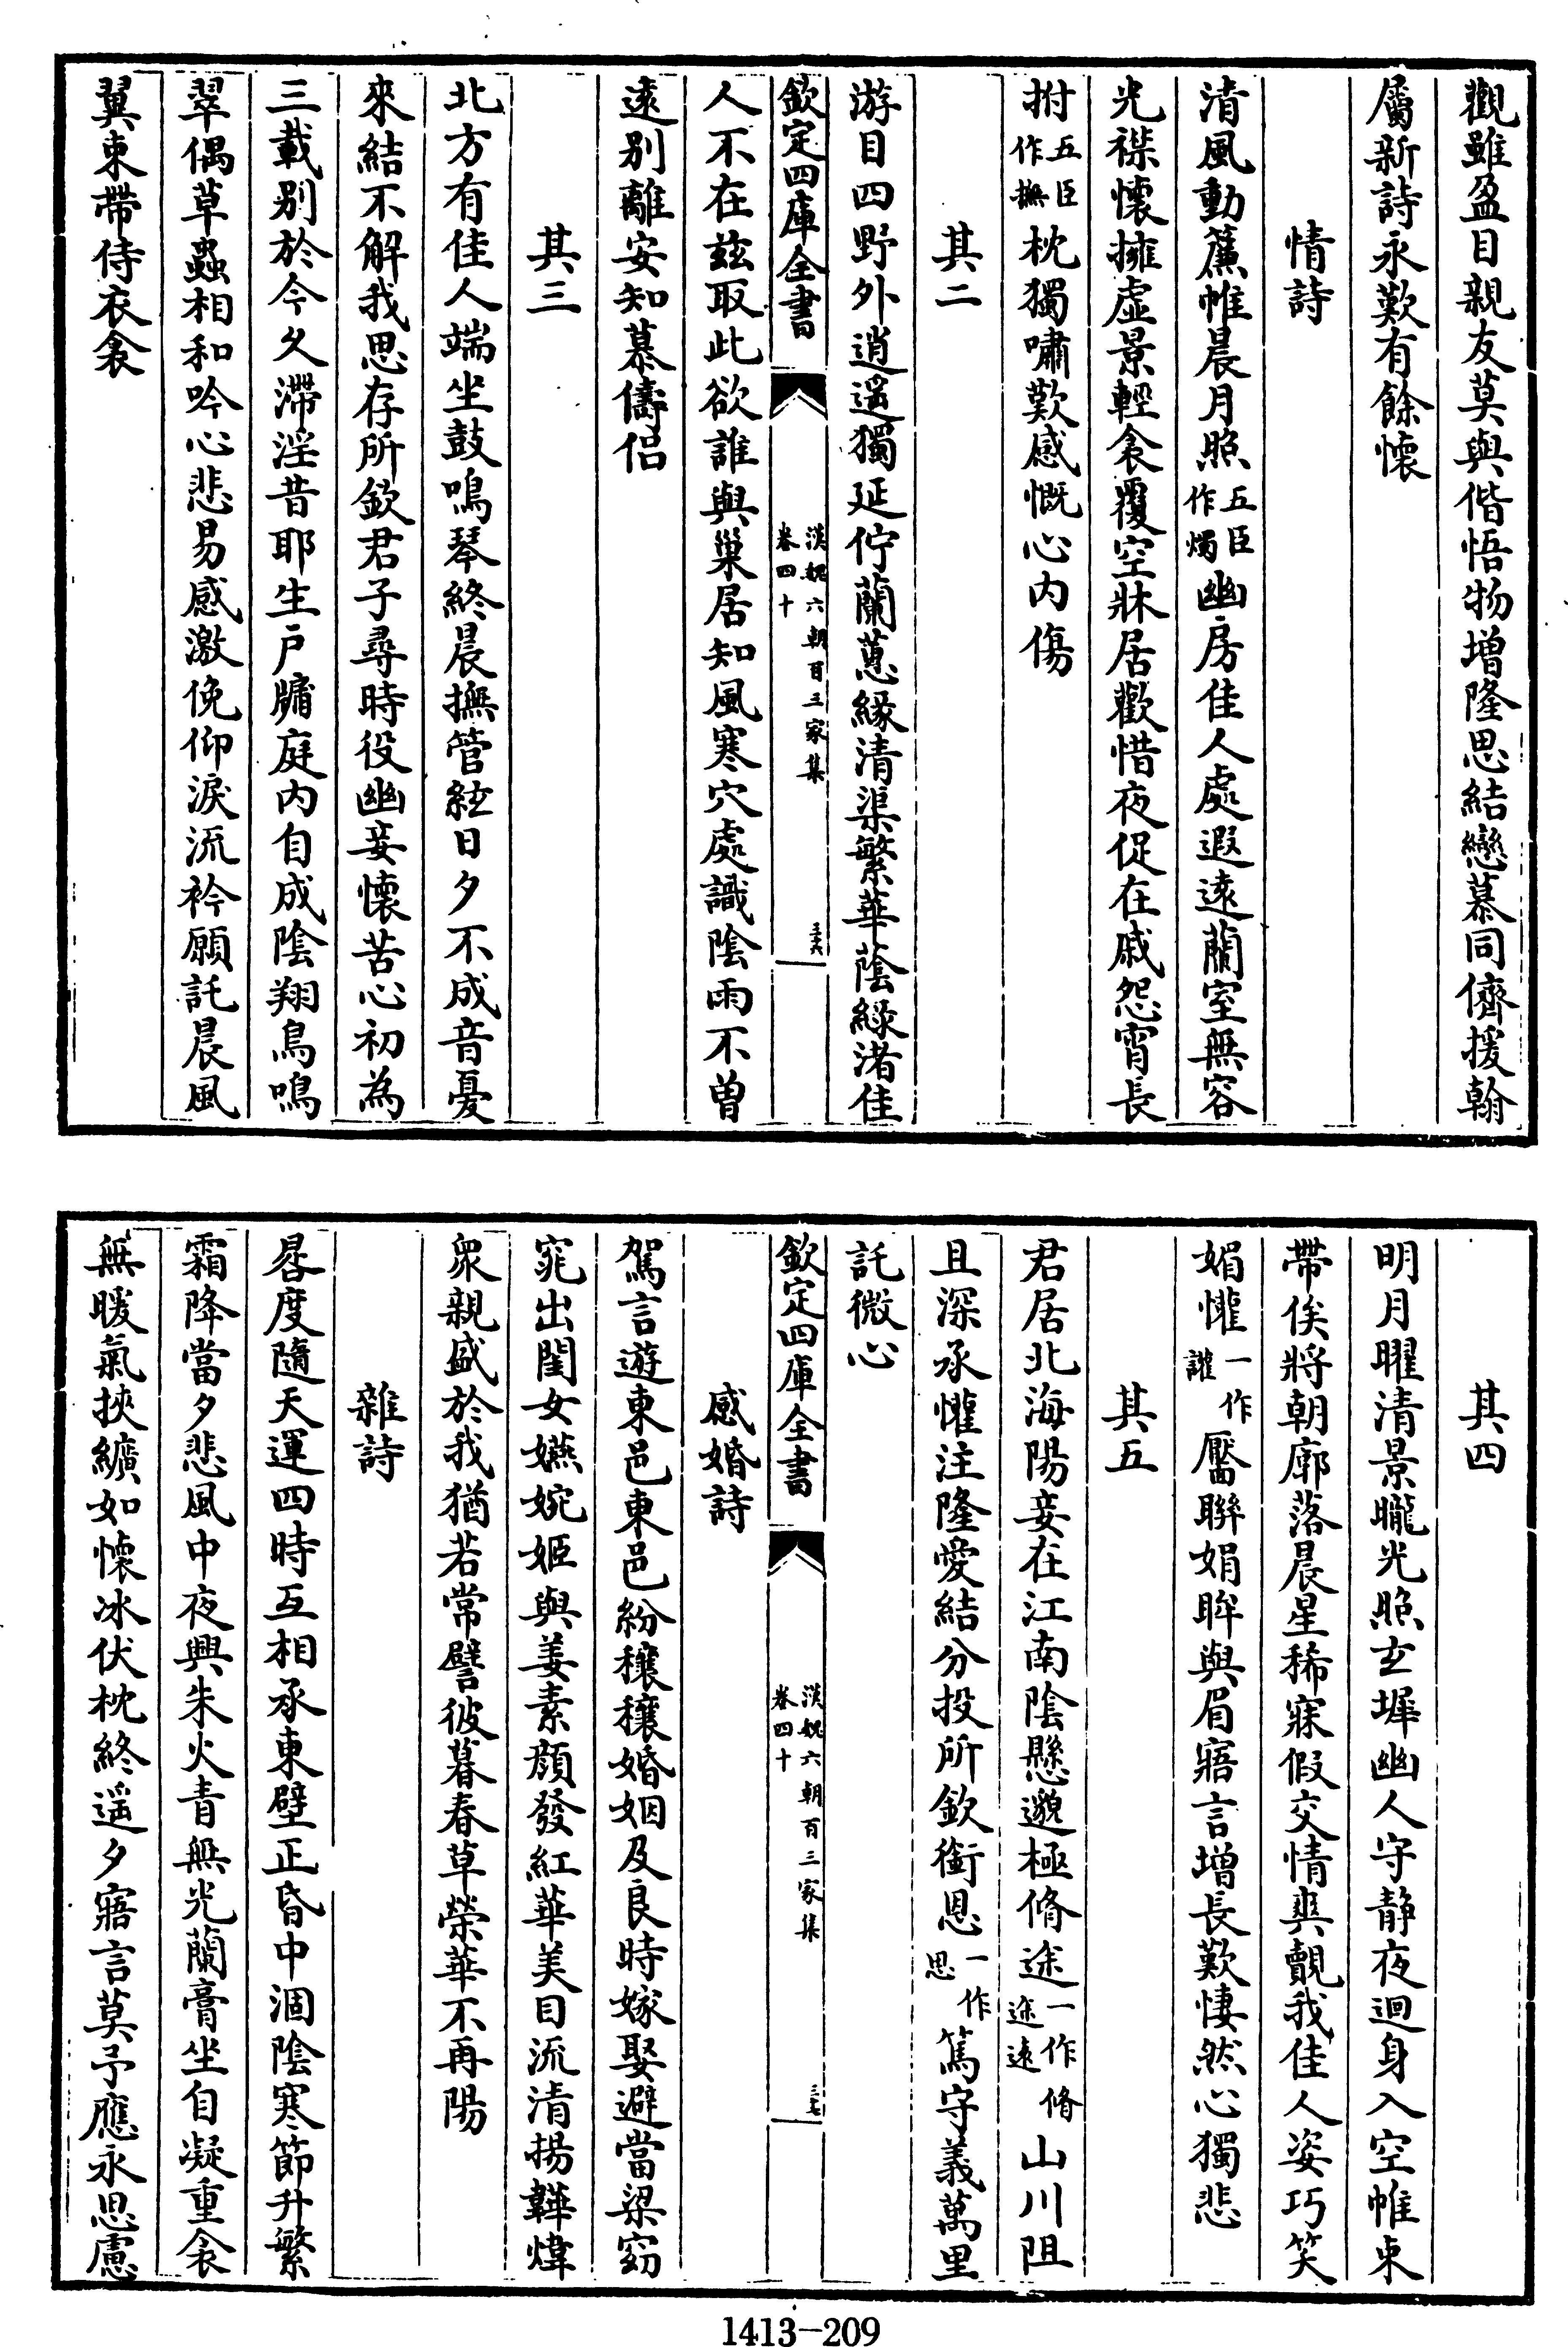 觀雖盈目親友莫與偕悟物增隆思結戀慕同儕援翰
屬新詩永歎有餘懷
情詩
清風動簾帷晨月照五臣作燭幽房佳人處遐遠蘭室無容
光襟懷擁虛景輕衾覆空牀居歡惜夜促在戚怨宵長
拊五臣作撫枕獨嘯歎感慨心内傷
其二
游目四野外逍遥獨延佇蘭蕙緣清渠繁華蔭綠渚佳
欽定四庫全書
漢魏六朝百三家集
卷四十
三六
人不在兹取此欲誰與巢居知風寒穴處識陰雨不曾
逺别離安知慕儔侣
其三
北方有佳人端坐鼓鳴琴終晨撫管絃日夕不成音憂
來結不解我思存所欽君子尋時役幽妾懷苦心初為
三載别於今久滯淫昔耶生戶牖庭内自成陰翔鳥鳴
翠偶草蟲相和吟心悲易感激俛仰淚流衿願託晨風
翼束帶侍衣衾
其四
明月曜清景曨光照玄墀幽人守靜夜迴身入空帷束
帶俟將朝廓落晨星稀寐假交情爽覿我佳人姿巧笑
媚懽一作讙靨聯娟眸與眉寤言增長歎悽然心獨悲
其五
君居北海陽妾在江南陰懸邈極脩途一作脩途逺山川阻
且深承懽注隆愛結分投所欽銜恩一作思篤守義萬里
託微心
欽定四庫全書
漢魏六朝百三家集
卷四十
三七
感婚詩
駕言遊東邑東邑紛穰穰婚姻及良時嫁娶避當梁窈
窕出閨女嬿婉姬與姜素顔發紅華美目流清揚韡煒
衆親盛於我猶若常譬彼暮春草榮華不再陽
雜詩
晷度隨天運四時互相承東壁正昏中涸陰寒節升繁
霜降當夕悲風中夜興朱火青無光蘭膏坐自凝重衾
無暖氣挾纊如懷冰伏枕終遥夕寤言莫予應永思慮
1413-209